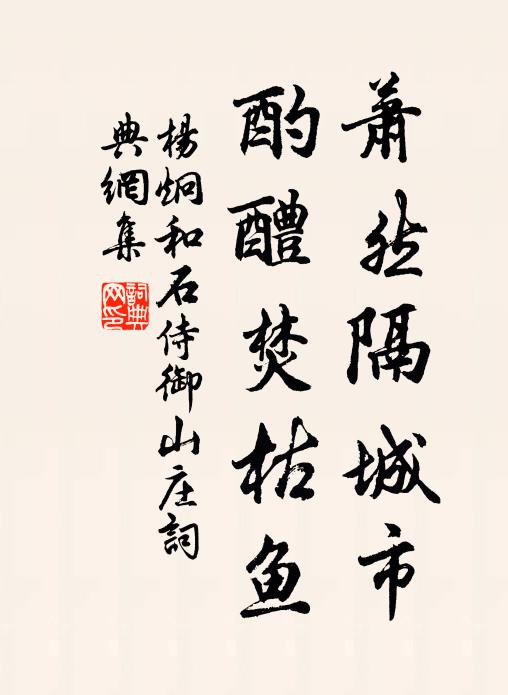 萧然隔城市
酌醴焚枯鱼
杨炯和石侍御山庄詞
典網集
詞典网印